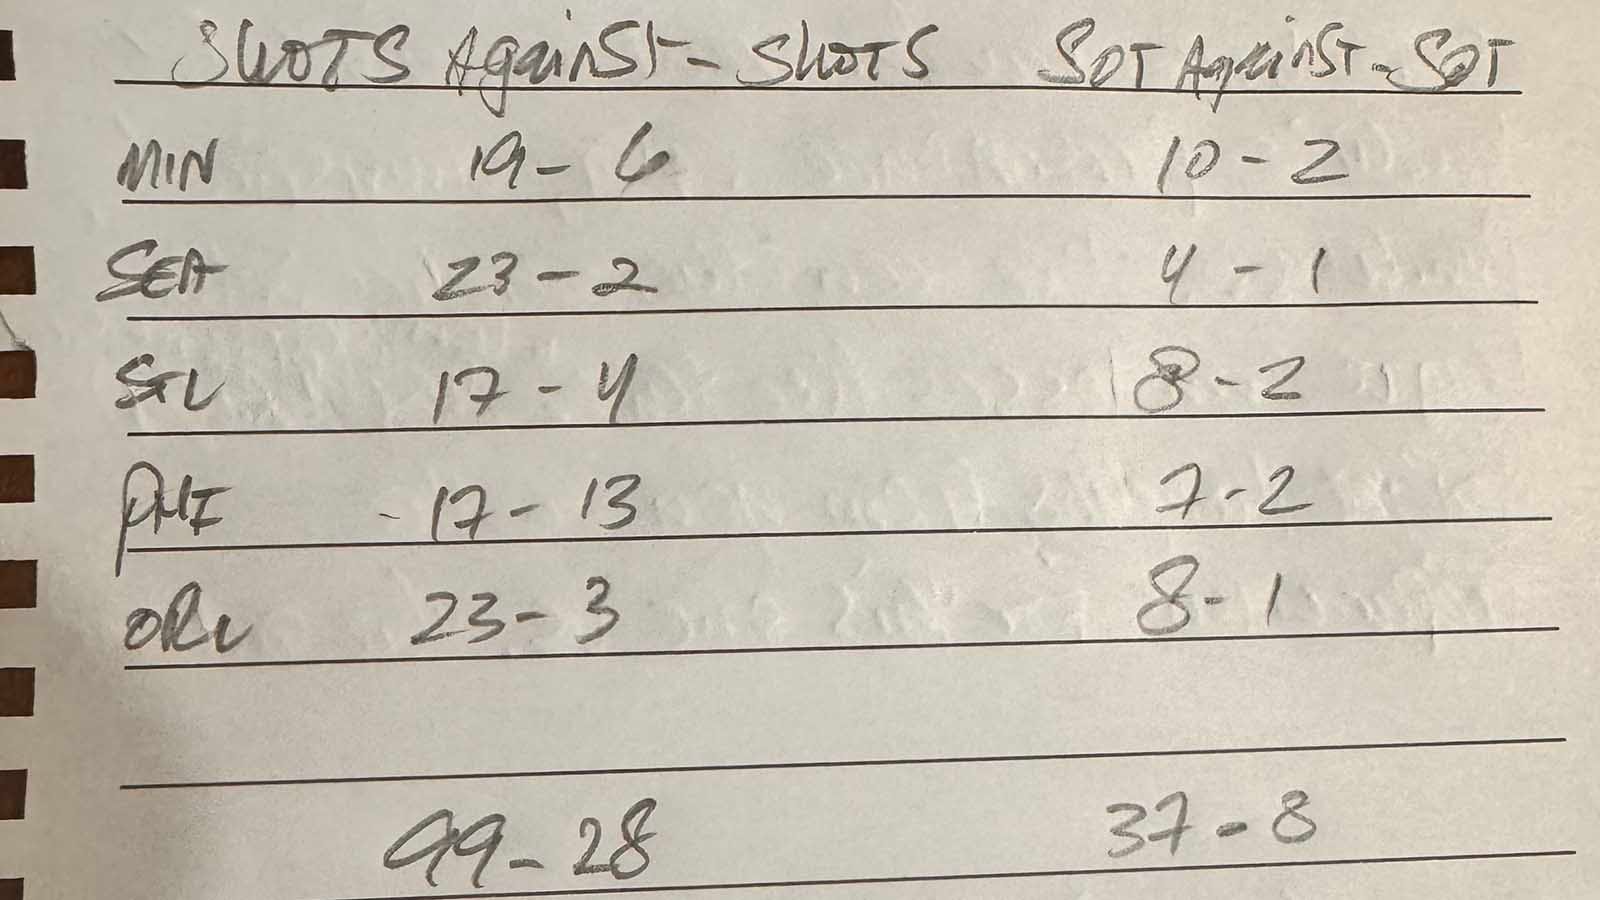 SHOTS Against - SHOTS SOT Against - SOT
MIN 19 - 6 10 - 2
SEA 23 - 2 4 - 1
STL 17 - 4 8 - 2
PHI - 17 - 13 7 - 2
ORL 23 - 3 8 - 1
99 - 28 37 - 8